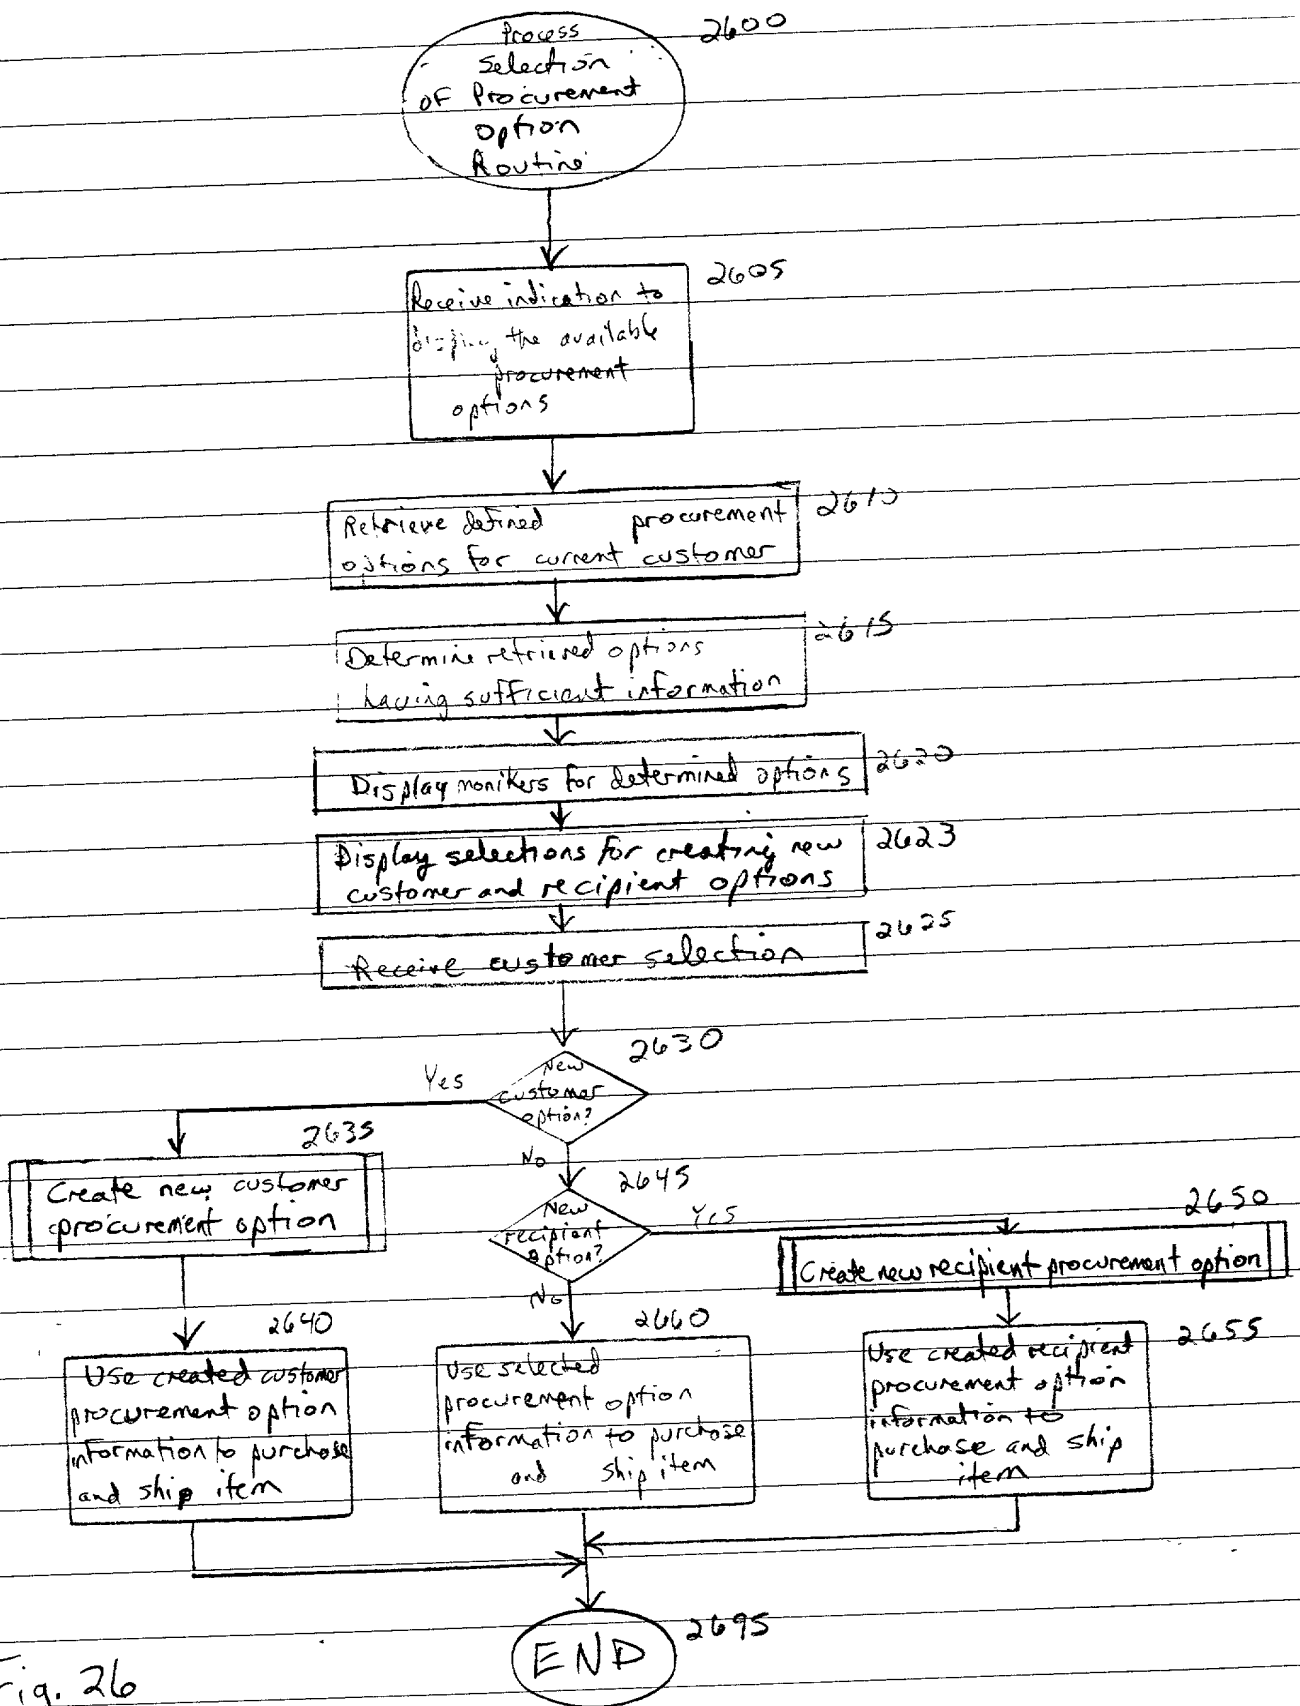 Process
2600
Selection
of Procurement
option
Routine
2605
Receive indication to
display the available
procurement
options
2610
Retrieve defined procurement
options for current customer
2615
Determine retrieved options
having sufficient information
2620
Display monikers for determined options
2623
Display selections for creating new
customer and recipient options
2625
Receive customer selection
2630
New
customer
option?
Yes
No
2635
Create new customer
procurement option
2645
New
recipient
option?
Yes
No
2650
Create new recipient procurement option
2640
Use created customer
procurement option
information to purchase
and ship item
2660
Use selected
procurement option
information to purchase
and ship item
2655
Use created recipient
procurement option
information to
purchase and ship
item
2695
END
Fig. 26